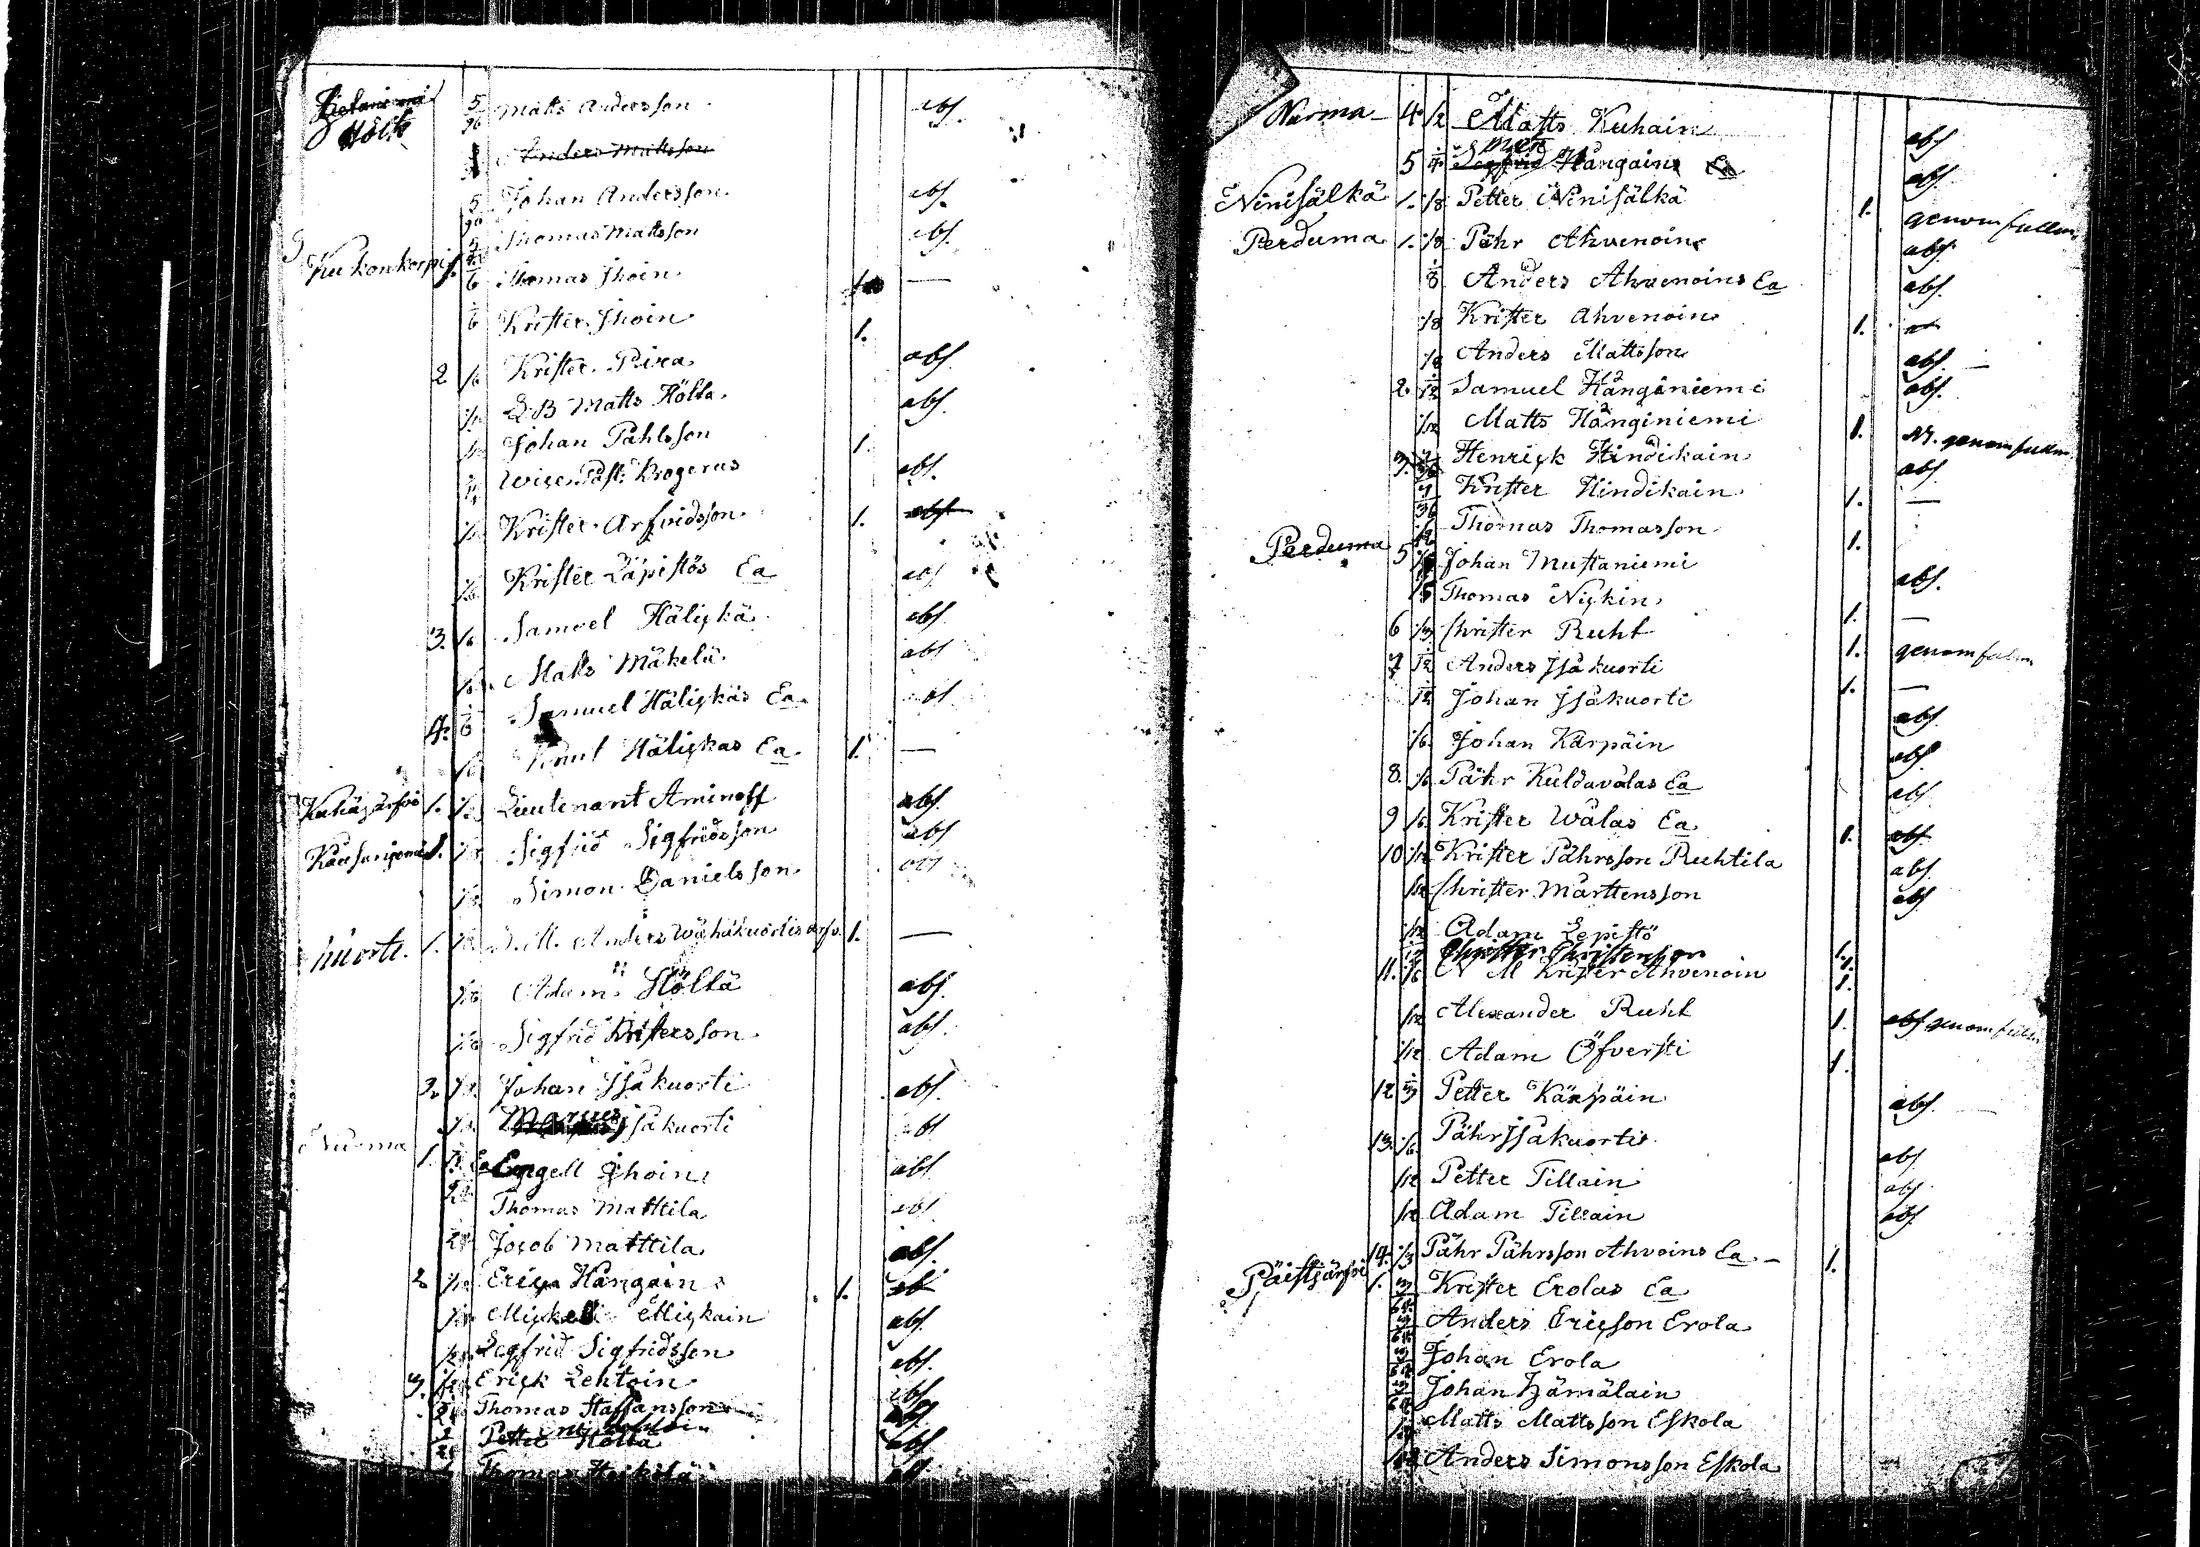 Hölt 5/96 Matts Andersson abs.
Anders Mattsson
5/96 Johan Andersson abs.
5 Thomas Mattsson abs.
Kukonkorpi 1. 1/6 Thomas Jhoin —
1/6 Krister Jhoin 1.
2 1/6 Krister Pira abs.
Matts Hölta abs.
Johan Påhlsson 1.
Past: Krogerus abs.
Krister Arfvidsson 1. abs
Krister Läpistös Ea abs
3. 1/6 Samuel Häligkä abs
Mats Mäkelä abs
4. 1/6 Samuel Häligkäs Ea abs
Knut Häligkas Ea 1. —
1. Lieutenant Aminoff abs.
1. Sigfrid Sigfridsson abs
Simon Danielsson
1. Anders Wähäkuortis 1. —
Adam Höltä abs.
Sigfrid Kristersson abs.
2. Johan Jsäkuorti abs.
Marcus Jsäkuorti abs
Nurma 1. Engell Jhoin abs.
Thomas Matttila abs.
Jacob Matttila abs.
2 1/12 Erich Hangain 1. ab
Migkell Migkain abs.
Segfrid Sigfridsson abs.
3. Erick Lehtoin abs
Thomas Staffansson abs
Petter Hölta abs
Thomas Heikilä abs.
Nurma 4. 1/2 Matts Kuhain abs
5 Hangain Ea abs.
Ninisälkä 1. 1/8 Petter Ninisälkä 1. genom fullm
Perduma 1. 1/8 Påhr Ahvenoin abs.
1/8 Anders Ahvenoins Ea abs.
1/8 Krister Ahvenoin 1.
1/8 Anders Mattsson abs.
2. 1/12 Samuel Hänginiemi abs.
1/12 Matts Hänginiemi 1. genom fullm
3. Henrigk Hindikain abs
Krister Hindikain 1. —
Thomas Thomasson 1.
Perduma 5 Johan Mustaniemi abs.
Thomas Nigkin 1. —
6 1/3 Christer Ruht 1. genom fullm
7 1/12 Anders Jsäkuorti 1. —
1/12 Johan Jsäkuorti abs.
1/6 Johan Kärpäin abs
8. 1/6 Påhr Kuldavalas Ea abs
9 1/6 Krister Walas Ea 1. abs.
10 1/12 Krister Påhrsson Ruhtila abs.
1/12 Christer Mårttensson abs
1/12 Adam Lepistö
1/12 Christer Christersson 1.
11. 1/6 N M Krister Ahvenoin 1.
1/12 Alexander Ruht 1. abs genom fullm
1/12 Adam Öfversti 1.
12 1/3 Petter Kärpäin abs.
13. 1/6 Påhr Jsäkuortis abs
1/12 Petter Tillain abs
1/12 Adam Tillain abs
14. 1/3 Påhr Påhrsson Ahvoins Ea — 1.
Päistjärfvi 1. 3/64 Krister Erolas Ea
3/64 Anders Ericsson Erola
3/64 Johan Erola
3/64 Johan Hämälain
Matts Mattsson Eskola
Anders Simonsson Eskola